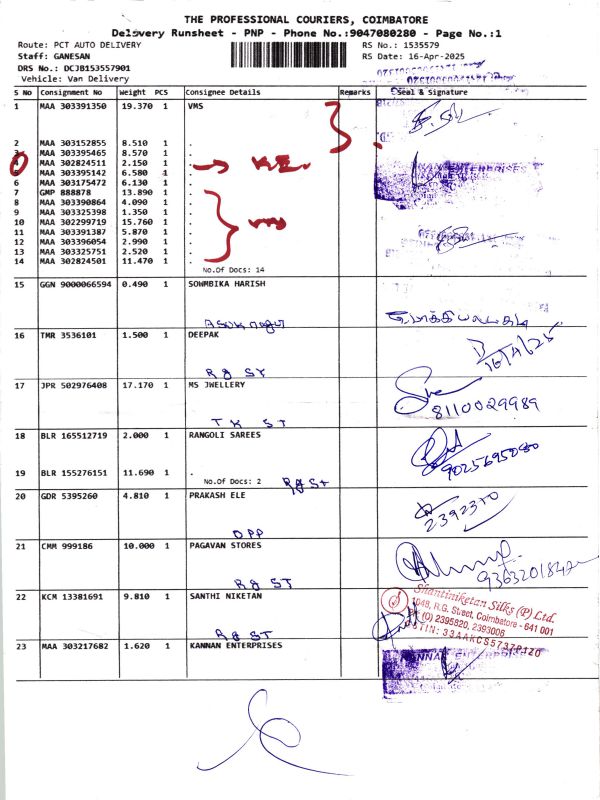 THE PROFESSIONAL COURIERS, COIMBATORE
Delivery Runsheet - PNP - Phone No.:9047080280 - Page No.:1
Route: PCT AUTO DELIVERY
RS No.: 1535579
Staff: GANESAN
RS Date: 16-Apr-2025
DRS No.: DCJB153557901
Vehicle: Van Delivery
S No Consignment No Weight PCS Consignee Details Remarks Seal & Signature
1 MAA 303391350 19.370 1 VMS
2 MAA 303152855 8.510 1 .
3 MAA 303395465 8.570 1 .
4 MAA 302824511 2.150 1 .
5 MAA 303395142 6.580 1 .
6 MAA 303175472 6.130 1 .
7 GMP 888878 13.890 1 .
8 MAA 303390864 4.090 1 .
9 MAA 303325398 1.350 1 .
10 MAA 302299719 15.760 1 .
11 MAA 303391387 5.870 1 .
12 MAA 303396054 2.990 1 .
13 MAA 303325751 2.520 1 .
14 MAA 302824501 11.470 1 .
No.Of Docs: 14
15 GGN 9000066594 0.490 1 SOWMBIKA HARISH
16 TMR 3536101 1.500 1 DEEPAK
16/4/25
R G ST
17 JPR 502976408 17.170 1 MS JWELLERY
8110029989
T K ST
18 BLR 165512719 2.000 1 RANGOLI SAREES
9025695080
19 BLR 155276151 11.690 1 .
No.Of Docs: 2 R G ST
20 GDR 5395260 4.810 1 PRAKASH ELE
2392310
OPP
21 CMM 999186 10.000 1 PAGAVAN STORES
R G ST
22 KCM 13381691 9.810 1 SANTHI NIKETAN
Shantiniketan Silks (P) Ltd.
1048, R.G. Street, Coimbatore - 641 001
(0) 2395820, 2393006
R G ST
23 MAA 303217682 1.620 1 KANNAN ENTERPRISES
KANNAN ENTERPRISES